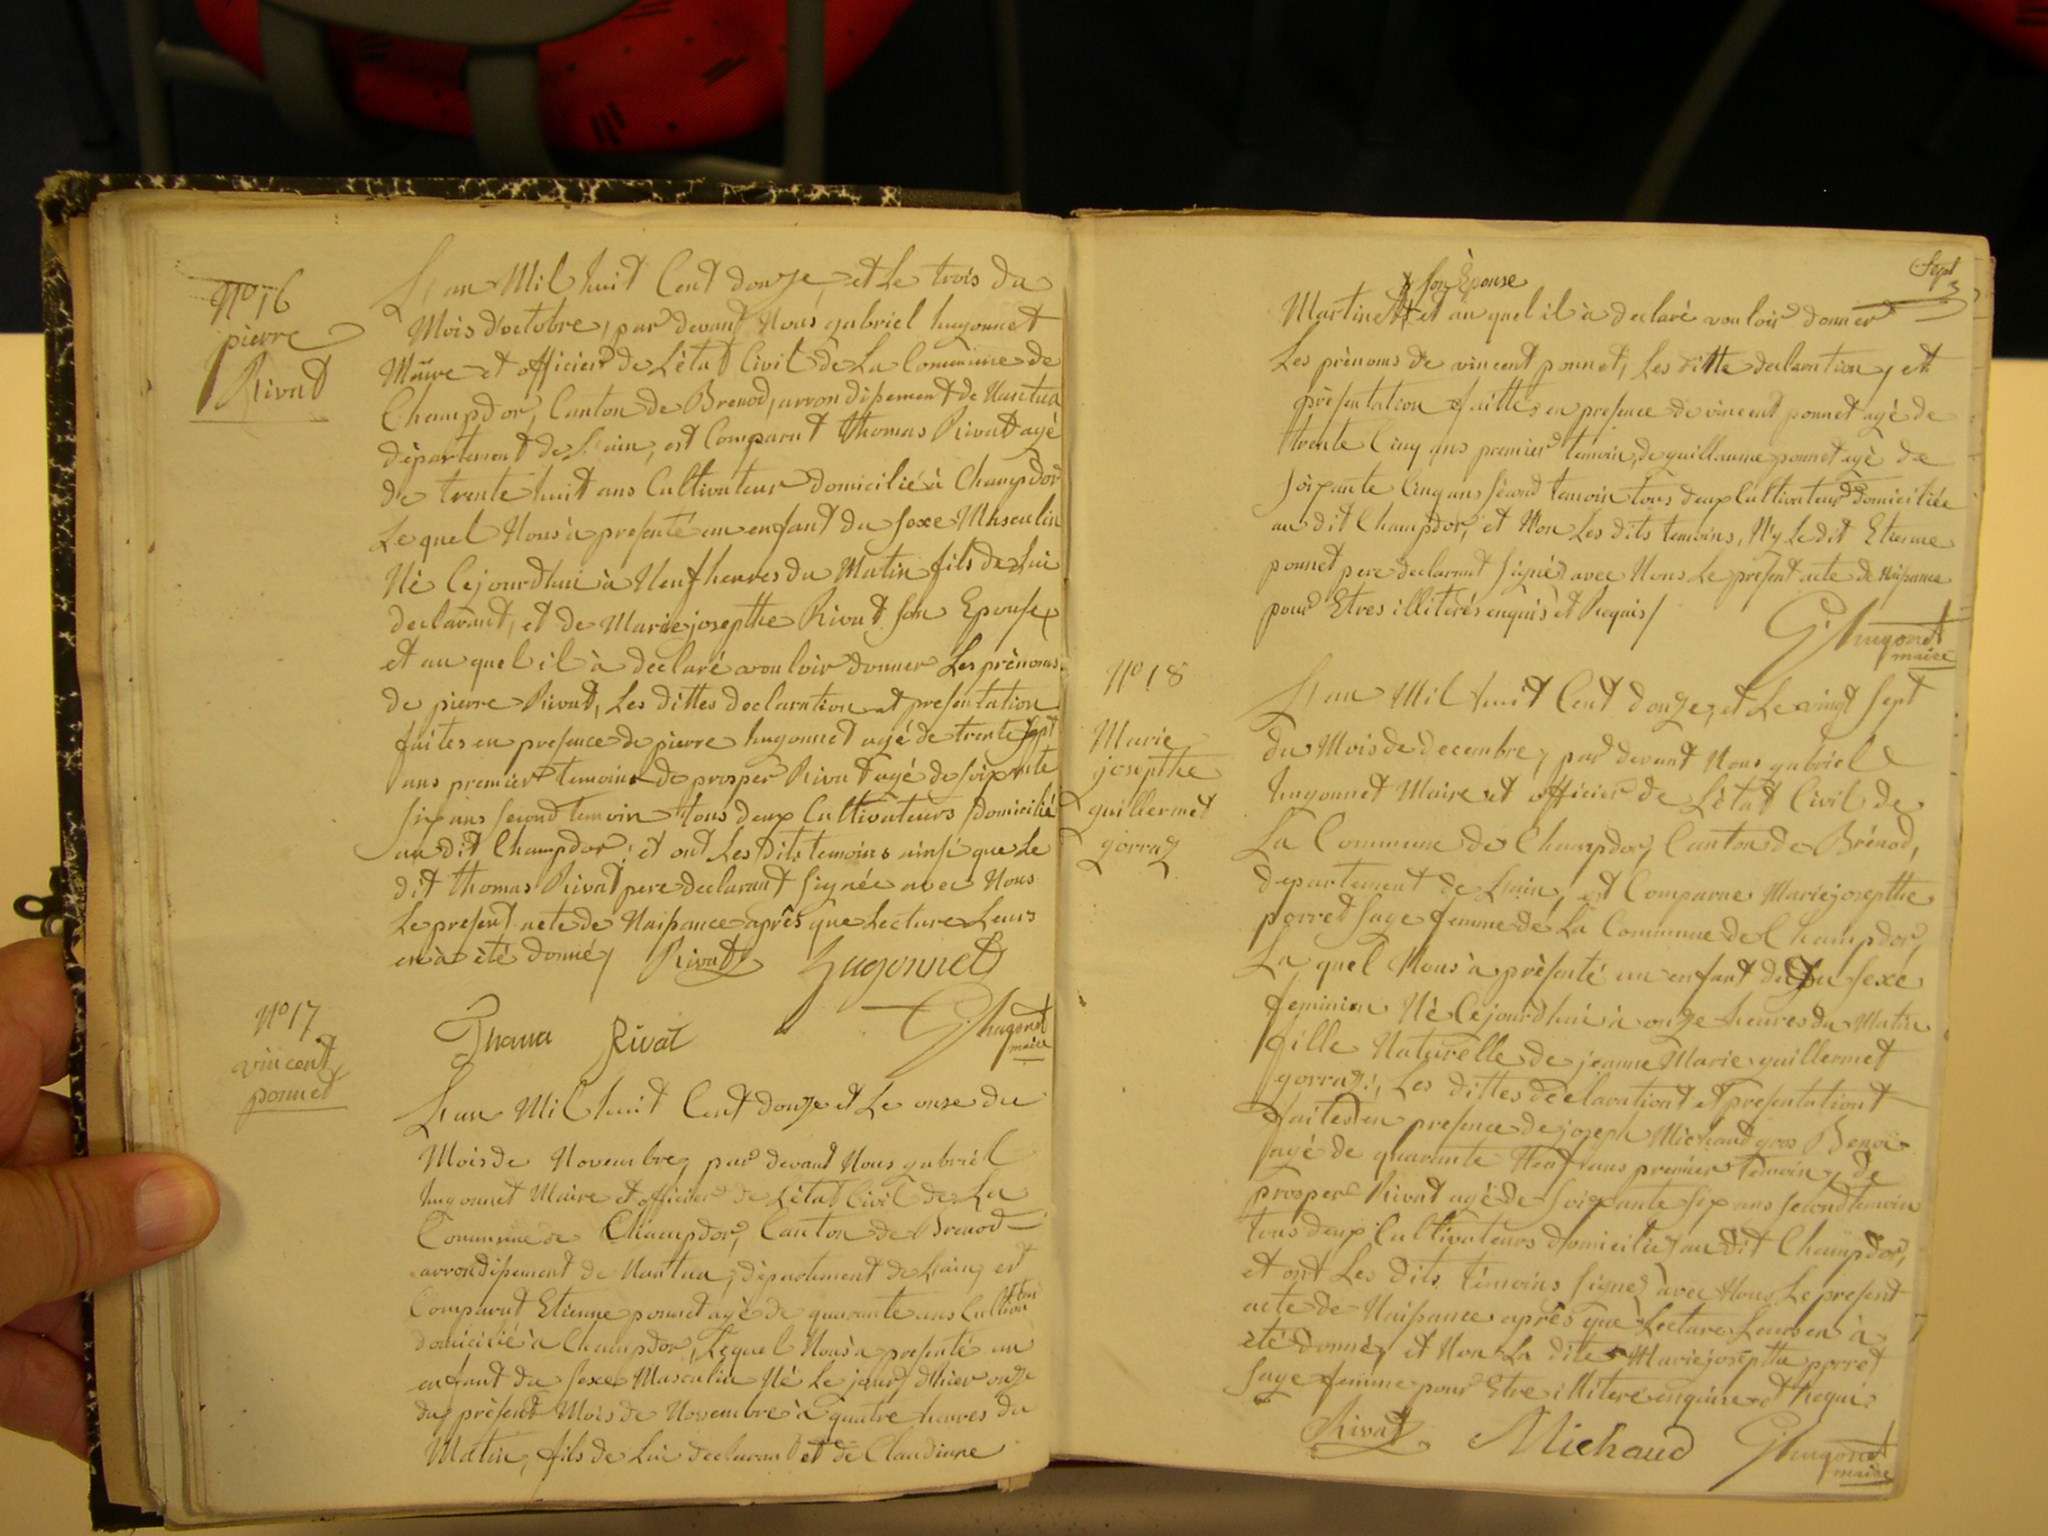 N° 16
pierre
Rivat
L'an Mil huit Cent douze, et Le trois du
Mois d'octobre, par devant Nous gabriel hugonnet
Maire et officier de L'état Civil de La Commune de
Champdor, Canton de Brenod, arrondissement de Nantua
département de L'ain, est Comparut thomas Rivat agé
de trente huit ans Cultivateur domicilié à Champdor
Le quel Nous à presenté un enfant du sexe Masculin
Né Cejourdhui à Neuf heures du Matin fils de Lui
declarant, et de Marie josepthe Rivat son Epouse
et au quel il à declaré vouloir donner Les prènoms
de pierre Rivat, Les dittes declaration et presentation
faites en presence de pierre hugonnet agé de trente sept
ans premier temoin de prosper Rivat agé de soixante
six ans second temoin tous deux Cultivateurs domicilié
au dit Champdor; et ont Les dits temoins ainsi que Le
dit thomas Rivat pere declarant signée avec Nous
Le present acte de Naissance après que Lecture Leurs
en à été donné, Rivat Hugonnet
Rivat G. hugonet
maire
N° 17
vincent
ponnet
L'an Mil huit Cent douze et Le onze du
Mois de Novembre, par devant Nous gabriel
hugonnet Maire et officier de L'état Civil de La
Commune de Champdor, Canton de Brenod
arrondissement de Nantua, département de L'ain, est
Comparut Etienne ponnet agé de quarante ans Cultivateur
domicilié à Champdor, Lequel Nous à presenté un
enfant du sexe Masculin Né Le jour d'hier onze
du present Mois de Novembre à quatre heures du
Matin, fils de Lui declarant et de Claudinne
Sept
son Epouse
Martinet et au quel il à declaré vouloir donner
Les prènoms de vincent ponnet, Les ditte declaration, et
présentation faittes en presence de vincent ponnet agé de
trente Cinq ans premier temoin, de guillaume ponnet agé de
soixante Cinq ans second temoin tous deux Cultivateur domiciliée
au dit Champdor, et Non Les dits temoins, N'y Le dit Etienne
ponnet pere declarant signés avec Nous Le present acte de Naissance
pour Etres illiterés enquis et Requis /
G. hugonet
maire
N° 18
Marie
josepthe
guillermet
gorraz
L'an Mil huit Cent douze, et Le vingt sept
du Mois de decembre, par devant Nous gabriel
hugonnet Maire et officier de L'état Civil de
La Commune de Champdor, Canton de Brénod,
departement de L'ain, est Comparue Marie josepthe
porret sage femme de La Commune de Champdor,
La quel Nous à présenté un enfant du sexe
feminin Né Cejourdhui à onze heures du Matin
fille Naturelle de jeanne Marie guillermet
gorraz, Les dittes declarationt et presentationt
faites en presence de joseph Michaud gros Benoi
agé de quarante Neuf ans premier temoin, de
prosper Rivat agé de soixante six ans second temoin
tous deux Cultivateurs domiciliez au dit Champdor,
et ont Les dits témoins signez avec Nous Le present
acte de Naissance après que Lecture Leurs en à
été donné, et Non La dite Marie josepthe porret
sage femme pour Etre illiteré enquise et Requi.
Rivat Michaud G. hugonet
maire